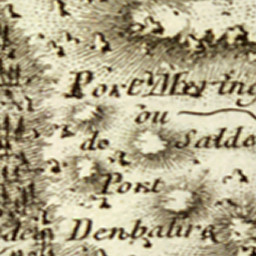 Port Mering
ou
de Salde
Port
Denbalira